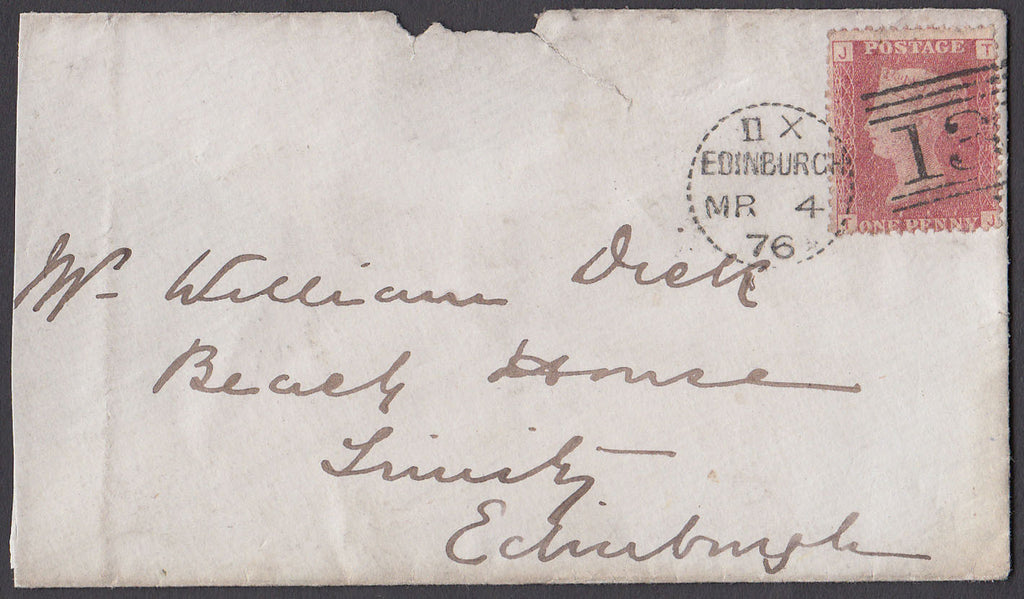 J POSTAGE T
13
T ONE PENNY J
II X
EDINBURGH
MR 4
76
Mr. William Dick
Beach House
Trinity
Edinburgh